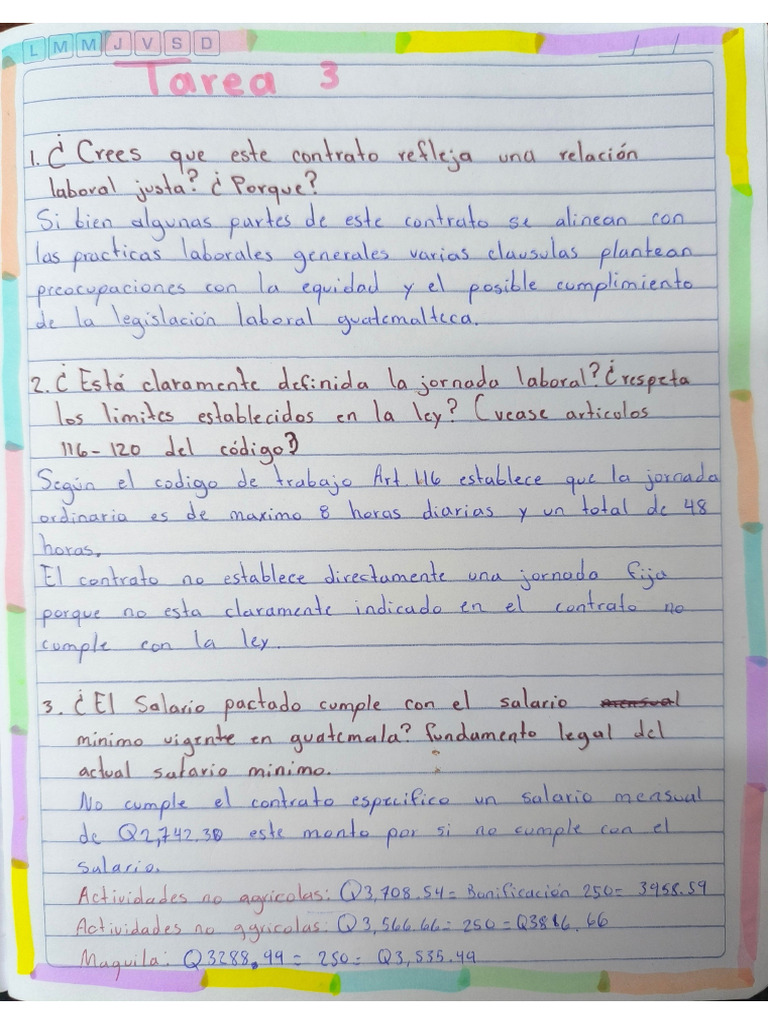 L M M J V S D
/ /
Tarea 3
1. ¿ Crees que este contrato refleja una relación
laboral justa? ¿ Porque?
Si bien algunas partes de este contrato se alinean con
las practicas laborales generales varias clausulas plantean
preocupaciones con la equidad y el posible cumplimiento
de la legislación laboral guatemalteca.
2. ¿ Está claramente definida la jornada laboral? ¿respeta
los limites establecidos en la ley? (vease articolos
116-120 del código?
Según el codigo de trabajo Art. 116 establece que la jornada
ordinaria es de maximo 8 horas diarias y un total de 48
horas.
El contrato no establece directamente una jornada fija
porque no esta claramente indicado en el contrato no
cumple con la ley.
3. ¿ El Salario pactado cumple con el salario mensual
minimo vigente en guatemala? fundamento legal del
actual salario minimo.
No cumple el contrato especifico un salario mensual
de Q2,742.30 este monto por si no cumple con el
salario.
Actividades no agricolas: Q3,708.54= Bonificación 250= 3958.59
Actividades no agricolas: Q3,566.66= 250= Q3816.66
Maquila: Q3288.99 = 250= Q3,535.49